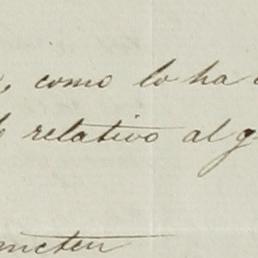 , como lo ha
relativo al g
meten